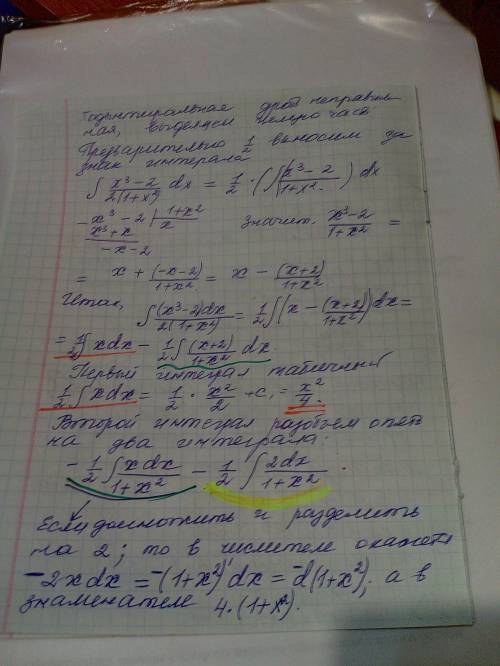 Подынтегральная дробь неправиль-
ная, выделяем целую часть
Предварительно 1/2 выносим за
знак интеграла
∫ (x³-2)/(2(1+x²)) dx = 1/2 · (∫ (x³-2)/(1+x²)) dx
x³-2 | 1+x²
x³+x | x Значит. (x³-2)/(1+x²) =
-x-2
= x + (-x-2)/(1+x²) = x - (x+2)/(1+x²)
Итак, ∫ (x³-2)dx/(2(1+x²)) = 1/2 ∫ (x - (x+2)/(1+x²)) dx =
= 1/2 ∫ xdx - 1/2 ∫ (x+2)/(1+x²) dx
Первый интеграл табличный
1/2 ∫ xdx = 1/2 · x²/2 + c₁ = x²/4.
Второй интеграл разобьем опять
на два интеграла:
- 1/2 ∫ xdx/(1+x²) - 1/2 ∫ 2dx/(1+x²).
Если домножить и разделить
на 2; то в числителе окажет
-2xdx = -(1+x²)'dx = -d(1+x²); а в
знаменателе 4·(1+x²).